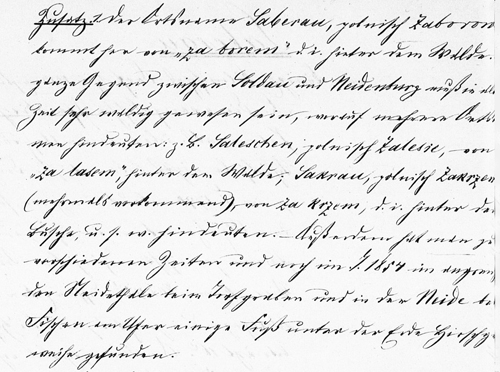 Zusatz: Der Ortsname Saberau, polnisch Zaborow
kommt her von „za borem" d. i. hinter dem Walde.
ganze Gegend zwischen Soldau und Neidenburg muß in al
Zeit sehr waldig gewesen sein, worauf mehrere Orts
men hindeuten: z. B. Saleschen, polnisch Zalesie, von
„za lasem", hinter dem Walde; Sakrau, polnisch Zakrze
(mehrmals vorkommend), von za krzem, d. i. hinter de
Busche, u. s. w. hindeuten. – Außerdem hat man zu
verschiedenen Zeiten und noch im J. 1854 im angren
den Neidethale beim Torfgraben und in der Neide be
Fischen am Ufer einige Fuß unter der Erde Hirschge
weihe gefunden.